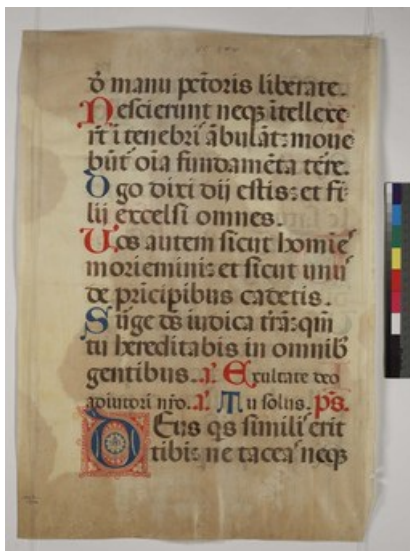 đ manu pctoris liberate.
Nescierunt neqꝫ ītellexe
rt̄ ī tenebrꝭ ābulāt: moue
būt oīa fundamēta terre.
Ego dixi dij estis: et fi
lij excelsi omnes.
Uos autem sicut homīe
moriemini: et sicut unuˢ
de principibus cadetis.
Surge ds iudica trā: qm̄
tu hereditabis in omnibꝫ
gentibus. a. Exultate deo
adiutori nr̄o. a. Tu solus. ps.
Deus qs similis erit
tibi: ne taceas neqꝫ